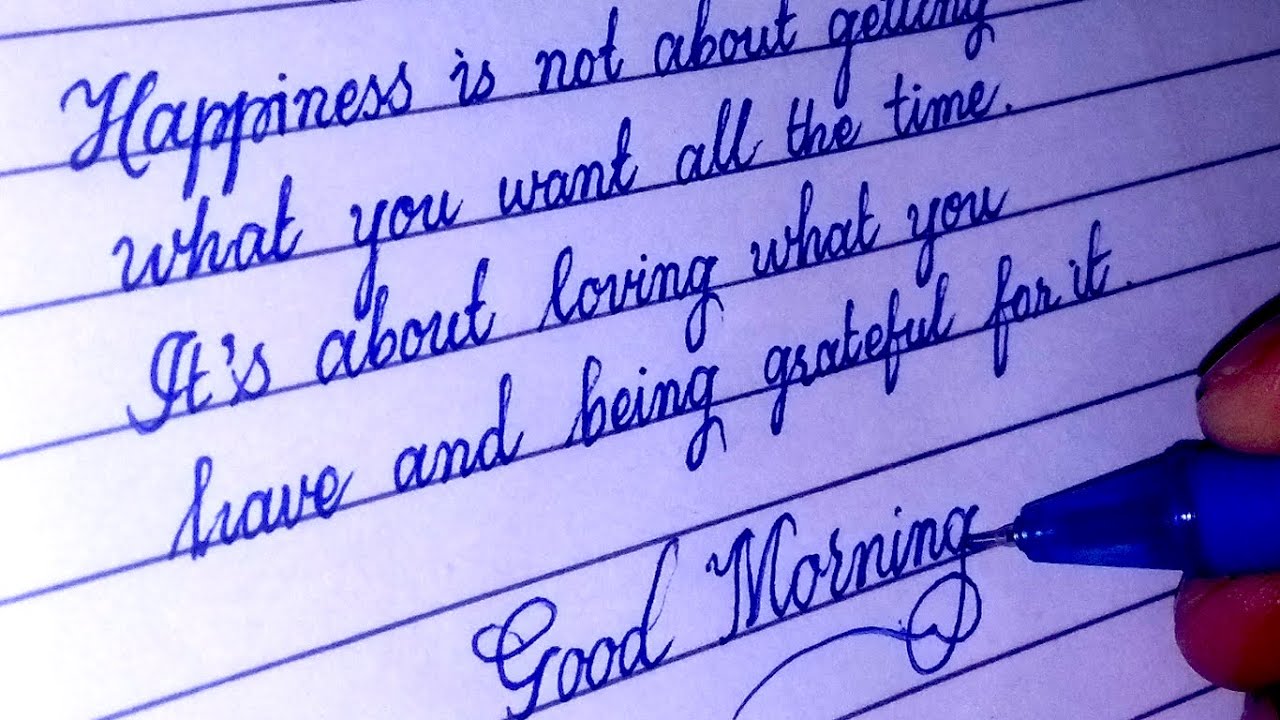 Happiness is not about getting
what you want all the time.
It's about loving what you
have and being grateful for it.
Good Morning